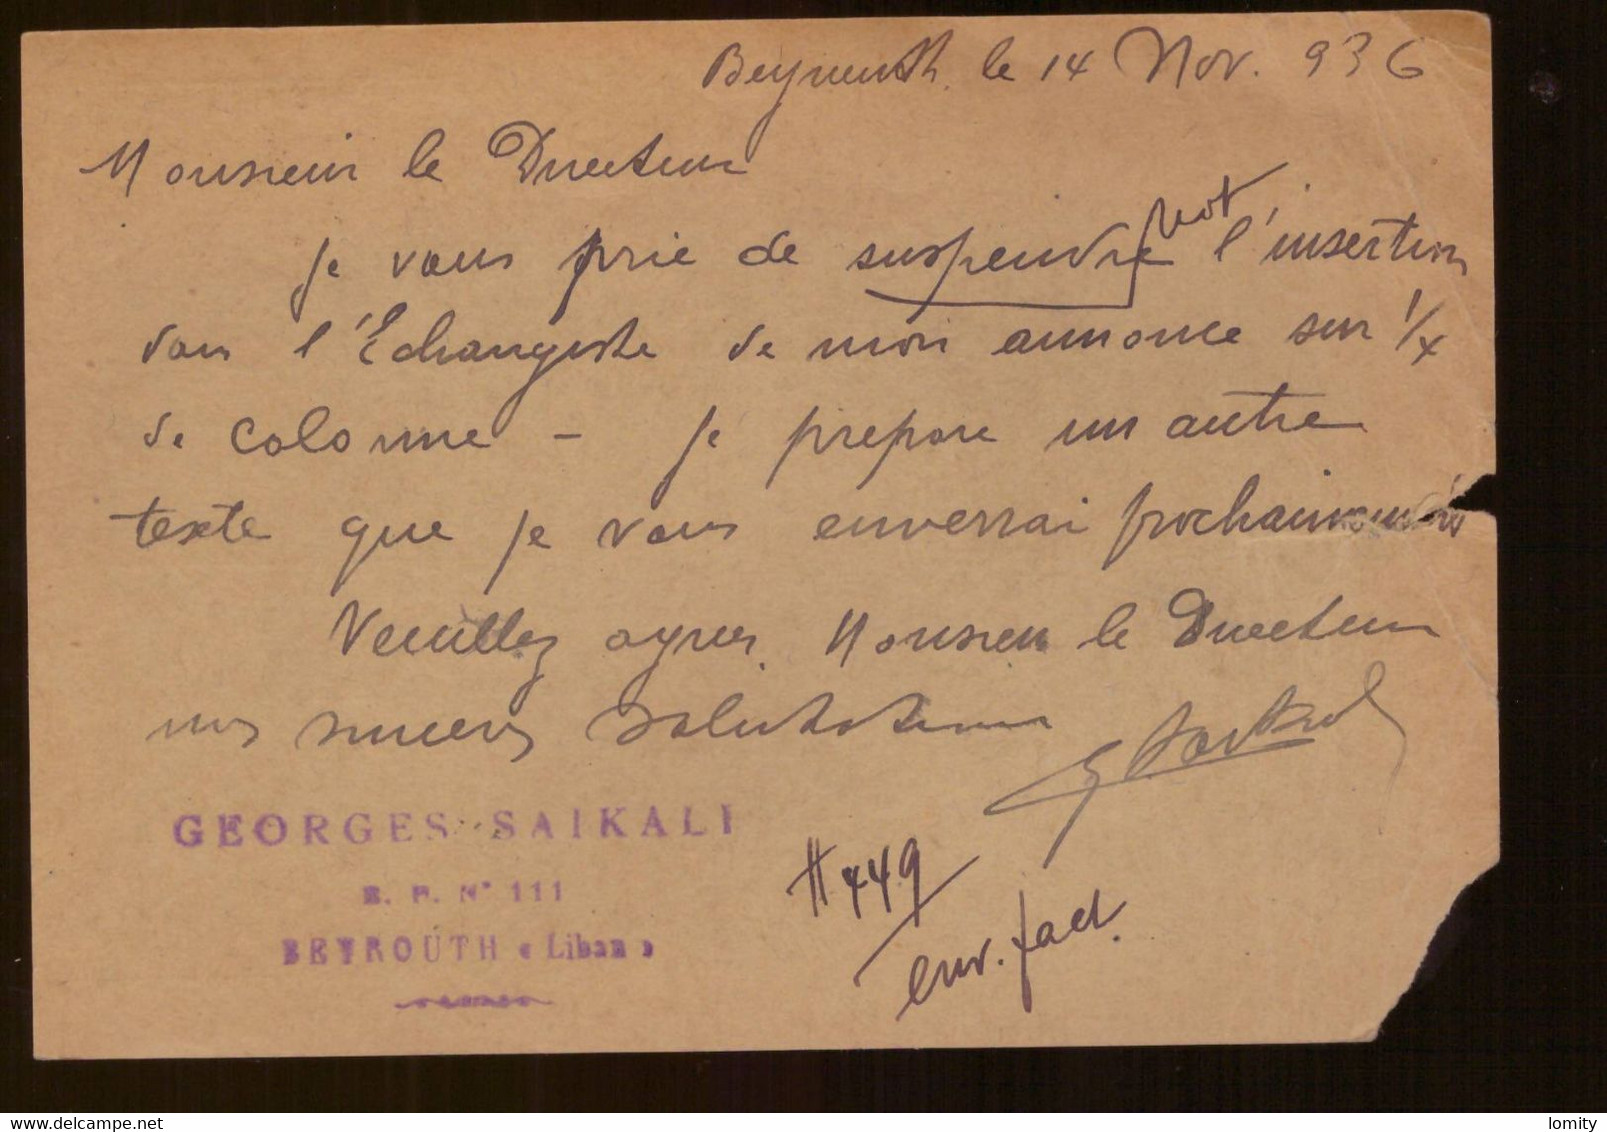 Beyrouth, le 14 Nov. 936
Monsieur le Directeur
je vous prie de suspendre l'insertion
dans l'Echangiste de mon annonce sur 1/4
de colonne - je prepare un autre
texte que je vous enverrai prochainement
Veuillez agreer, Monsieur le Directeur
mes sinceres salutations
GEORGES SAIKALI
B. P. N° 111
BEYROUTH « Liban »
449
env. fact.
lomity